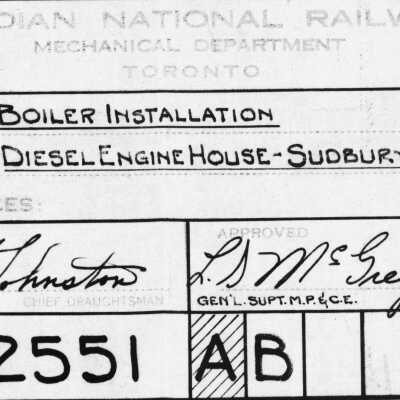 DIAN NATIONAL RAILW
MECHANICAL DEPARTMENT
TORONTO
BOILER INSTALLATION
DIESEL ENGINE HOUSE - SUDBURY
CES:
Johnston
CHIEF DRAUGHTSMAN
APPROVED
L. S. McGre
GEN'L. SUPT. M.P. & C.E.
2551
A B